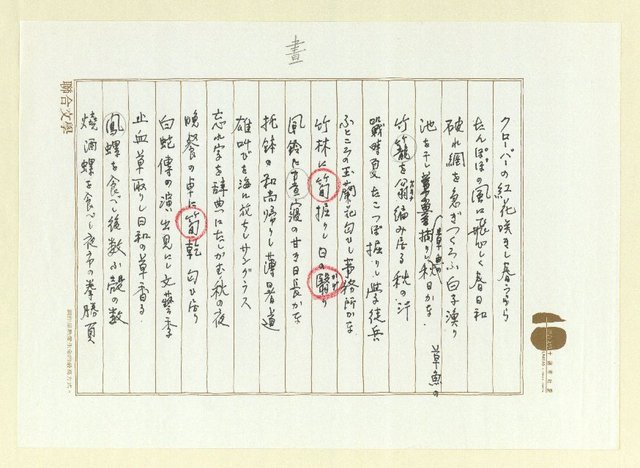 畫
クローバーの紅花咲きし春うらら
たんぽぽの風に飛びし春日和
破れ網を急ぎつくろふ白子漁り
池を干し草魚捕りし秋日かな
草魚の
竹籠を編み居る秋の汗
戦時夏たこつぼ掘りし学徒兵
ふところの玉蘭花匂ひし事務所かな
竹林に筍掘りし日の翳り
風鈴に昼寝の甘き日長かな
托鉢の和尚帰りし薄暑道
雄叫びを海に放ちしサングラス
忘れ字を辞典にたしかむ秋の夜
晩餐の卓に筍乾匂ひ居り
白蛇傳の演出見にし文藝季
止血草取りし日和の草香る
鳳螺を食べし後数ふ殻の数
焼酒螺を食べし夜市の拳勝負
聯合文學